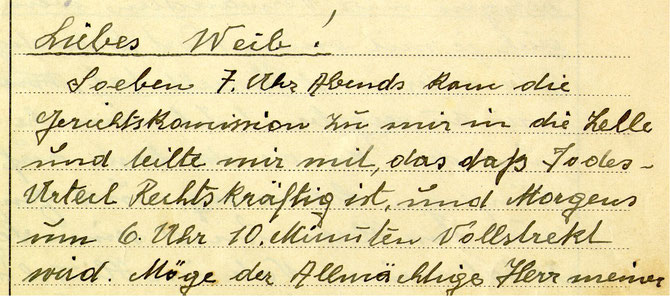 Liebes Weib!
Soeben 7. Uhr Abends kam die
Gerichtskomission zu mir in die Zelle
und teilte mir mit, das daß Todes-
Urteil Rechtskräftig ist, und Morgens
um 6. Uhr 10. Minuten Vollstrekt
wird. Möge der Allmächtige Herr meiner